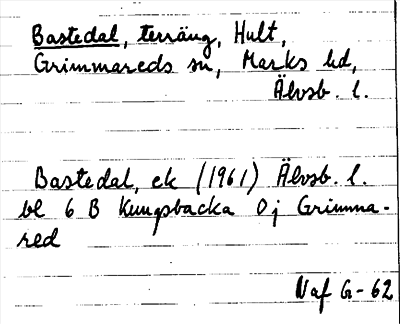 Bastedal, terräng, Hult,
Grimmareds sn, Marks hd,
Älvsb. l.
Bastedal, ek (1961) Älvsb. l.
bl 6 B Kungsbacka 0j Grimma-
red
Vaf G-62